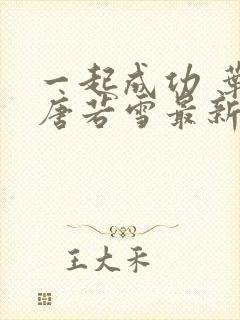 一起成功 葉
唐若雪最新
王大禾